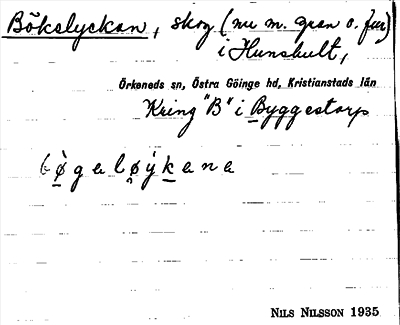 Bökslyckan, skog (nu m. gran o. fur)
i Hunshult,
Örkeneds sn, Östra Göinge hd, Kristianstads län
Kring "B" i Byggestorp
bø̀galøẏkana
NILS NILSSON 1935